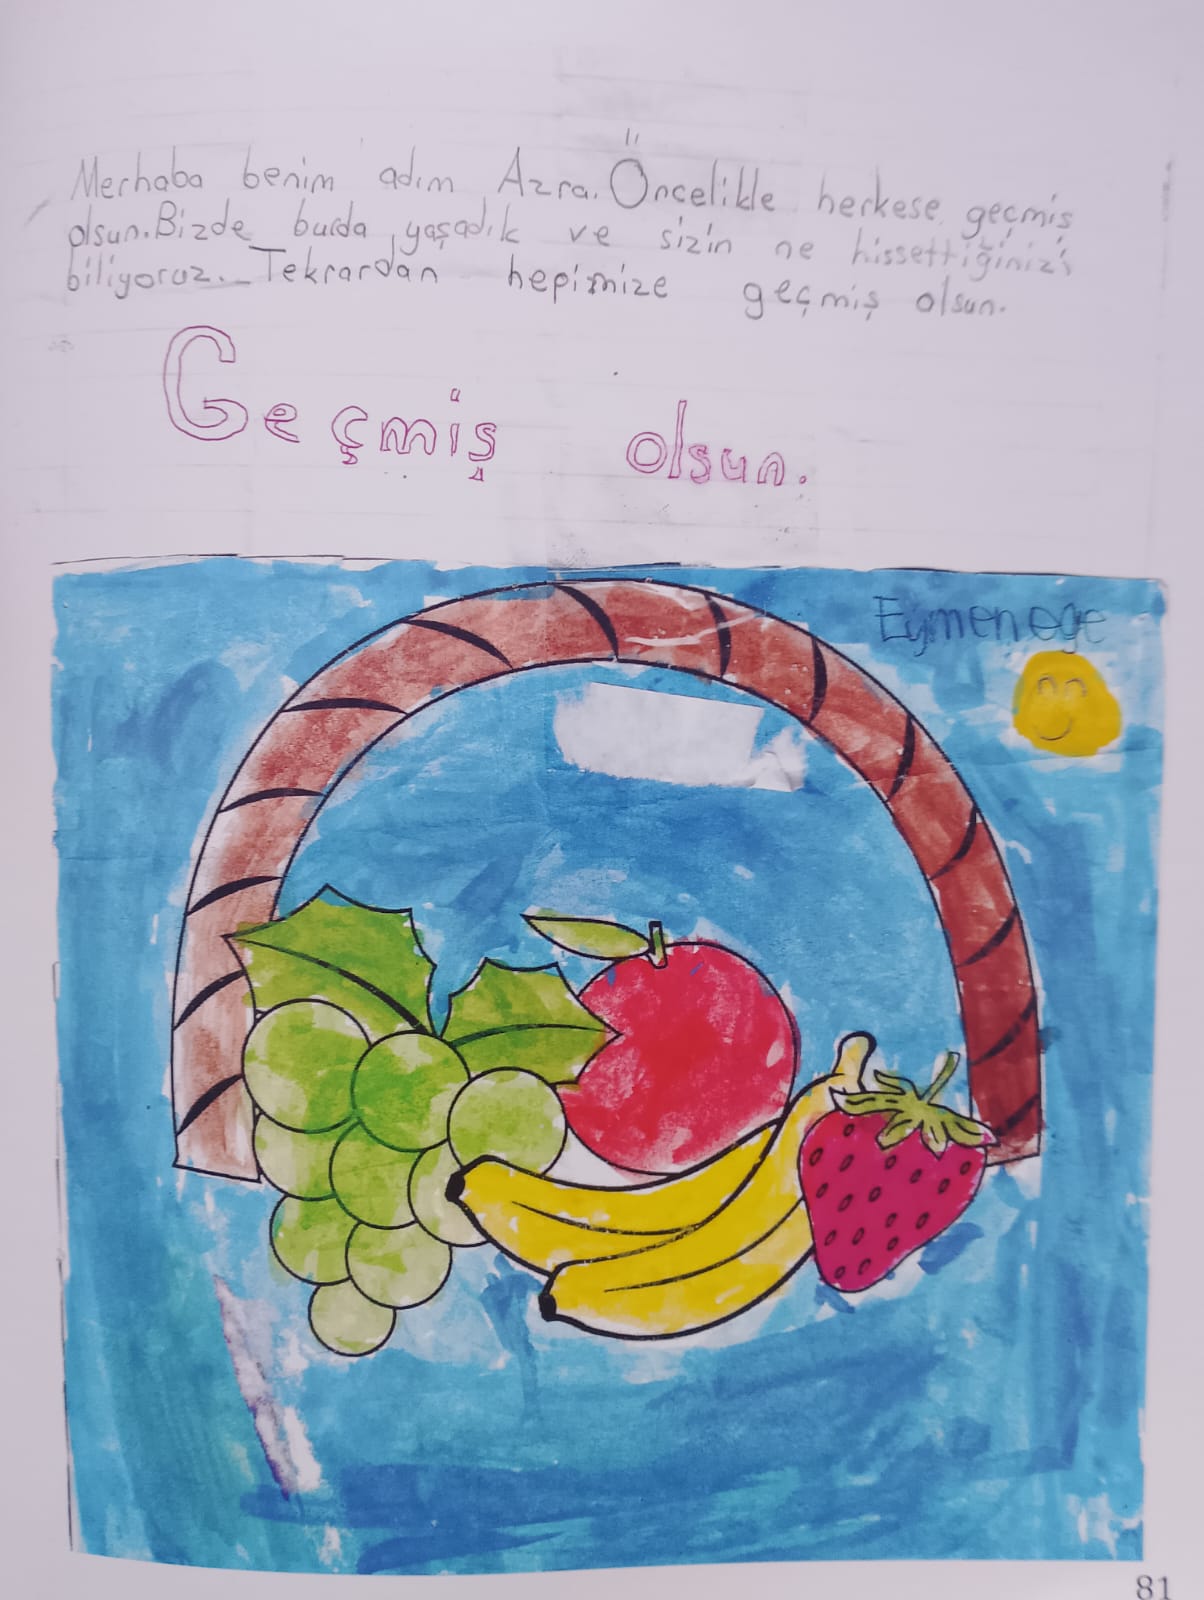 Merhaba benim adım Azra. Öncelikle herkese geçmiş
olsun. Bizde burda yaşadık ve sizin ne hissettiğinizi
biliyoruz. Tekrardan hepimize geçmiş olsun.
Geçmiş olsun.
Eymen ege
81